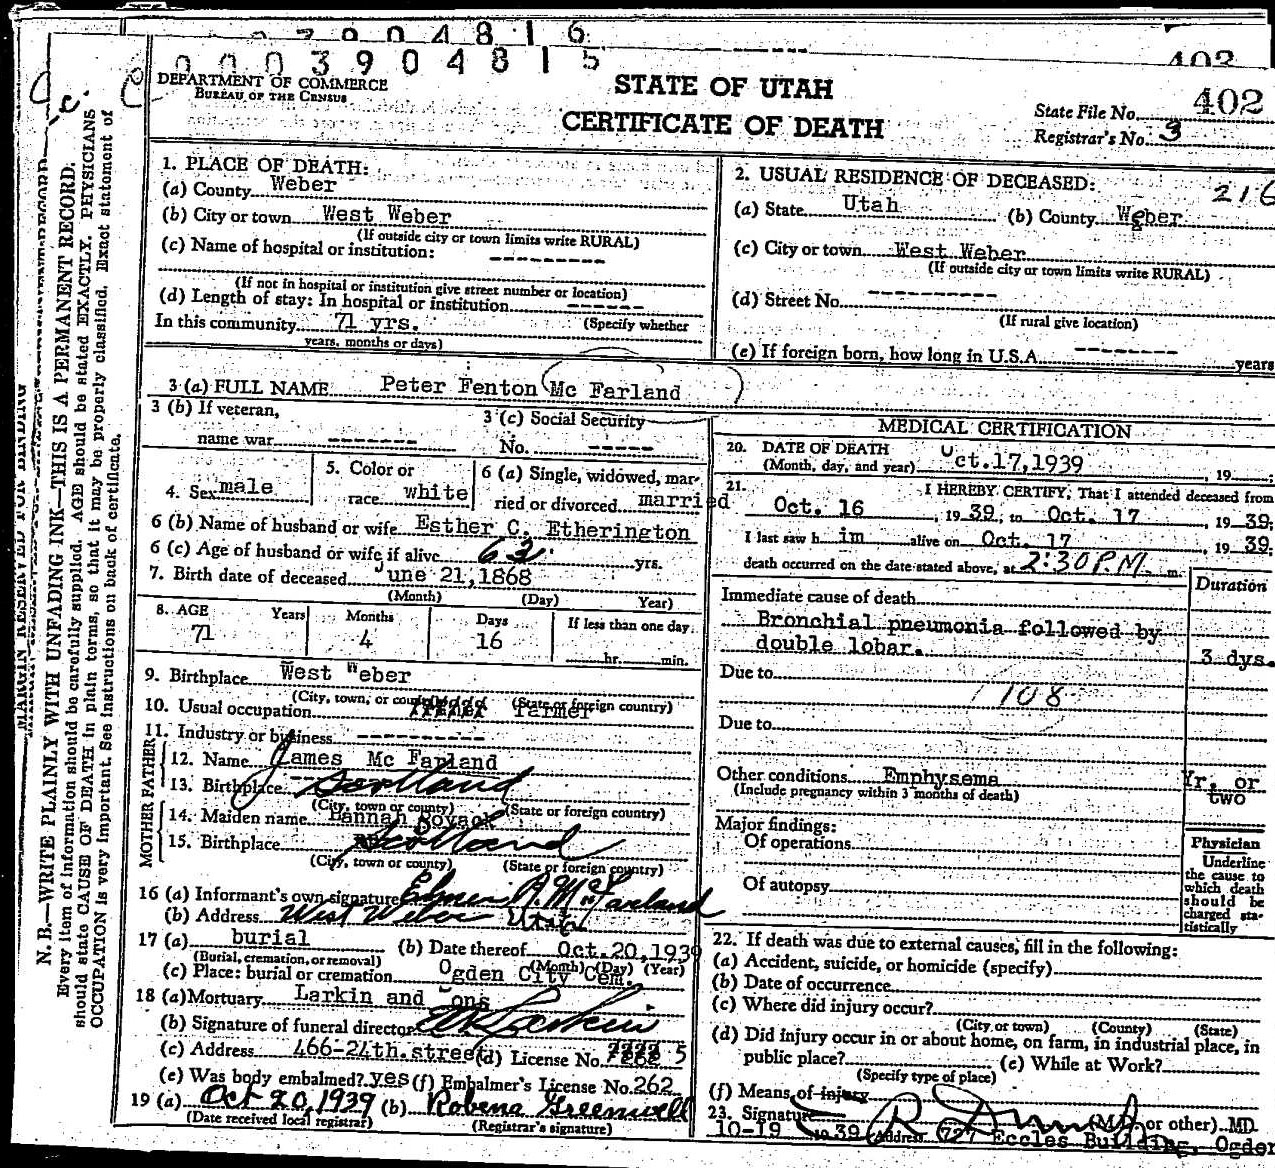 0003904815
402
DEPARTMENT OF COMMERCE
BUREAU OF THE CENSUS
STATE OF UTAH
CERTIFICATE OF DEATH
State File No. 402
Registrar's No. 3
MARGIN RESERVED FOR BINDING
N. B.—WRITE PLAINLY WITH UNFADING INK—THIS IS A PERMANENT RECORD.
Every item of information should be carefully supplied. AGE should be stated EXACTLY. PHYSICIANS
should state CAUSE OF DEATH in plain terms, so that it may be properly classified. Exact statement of
OCCUPATION is very important. See instructions on back of certificate.
1. PLACE OF DEATH:
(a) County Weber
(b) City or town West Weber
(If outside city or town limits write RURAL)
(c) Name of hospital or institution: ---------
(If not in hospital or institution give street number or location)
(d) Length of stay: In hospital or institution ------
In this community 71 yrs. (Specify whether
years, months or days)
2. USUAL RESIDENCE OF DECEASED: 216
(a) State Utah (b) County Weber
(c) City or town West Weber
(If outside city or town limits write RURAL)
(d) Street No. ----------
(If rural give location)
(e) If foreign born, how long in U.S.A. -------- years
3 (a) FULL NAME Peter Fenton Mc Farland
3 (b) If veteran,
name war -------
3 (c) Social Security
No. -----
4. Sex male
5. Color or
race white
6 (a) Single, widowed, mar-
ried or divorced married
6 (b) Name of husband or wife Esther C. Etherington
6 (c) Age of husband or wife if alive 63 yrs.
7. Birth date of deceased June 21,1868
(Month) (Day) Year)
8. AGE Years Months Days If less than one day
71 4 16 hr. min.
9. Birthplace West Weber
(City, town, or county) (State or foreign country)
10. Usual occupation farmer
11. Industry or business ----------
FATHER
12. Name James Mc Farland
13. Birthplace Scotland
(City, town or county) (State or foreign country)
MOTHER
14. Maiden name Hannah
15. Birthplace Scotland
(City, town or county) (State or foreign country)
16 (a) Informant's own signature A. McFarland
(b) Address West Weber Utah
17 (a) burial (b) Date thereof Oct.20,1939
(Burial, cremation, or removal) (Month) (Day) (Year)
(c) Place: burial or cremation Ogden City Cem.
18 (a) Mortuary Larkin and Sons
(b) Signature of funeral director Larkin
(c) Address 466-24th.street (d) License No.
(e) Was body embalmed? yes (f) Embalmer's License No. 262
19 (a) Oct 20, 1939 (b) Robena Greenwell
(Date received local registrar) (Registrar's signature)
MEDICAL CERTIFICATION
20. DATE OF DEATH
(Month, day, and year) Oct.17,1939, 19
21. I HEREBY CERTIFY, That I attended deceased from
Oct. 16, 1939, to Oct. 17, 1939;
I last saw him alive on Oct. 17, 1939;
death occurred on the date stated above, at 2:30 P.M. m.
Duration
Immediate cause of death
Bronchial pneumonia followed by
double lobar. 3 dys.
Due to 108
Due to
Other conditions Emphysema Yr. or
two
(Include pregnancy within 3 months of death)
Major findings:
Of operations
Of autopsy
Physician
Underline
the cause to
which death
should be
charged sta-
tistically
22. If death was due to external causes, fill in the following:
(a) Accident, suicide, or homicide (specify)
(b) Date of occurrence
(c) Where did injury occur?
(City or town) (County) (State)
(d) Did injury occur in or about home, on farm, in industrial place, in
public place? (e) While at Work?
(Specify type of place)
(f) Means of injury
23. Signature (M.D. or other) MD
10-19 1939 Address 727 Eccles Building, Ogden